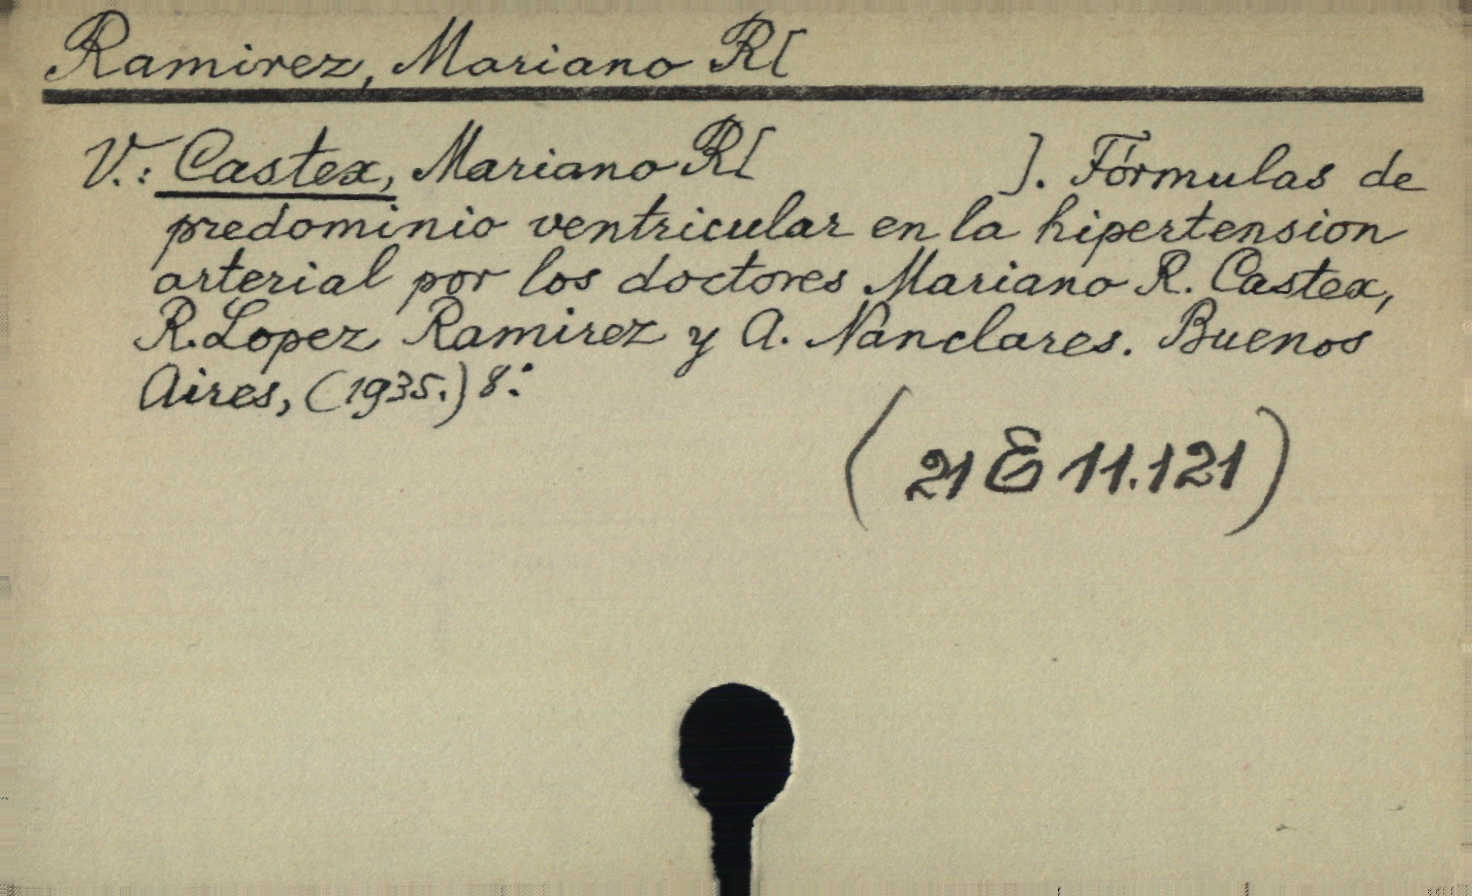 Ramirez, Mariano R[
V.: Castex, Mariano R[ ]. Fórmulas de
predominio ventricular en la hipertension
arterial por los doctores Mariano R. Castex,
R. Lopez Ramirez y A. Nanclares. Buenos
Aires, (1935.) 8:
(21 E 11.121)